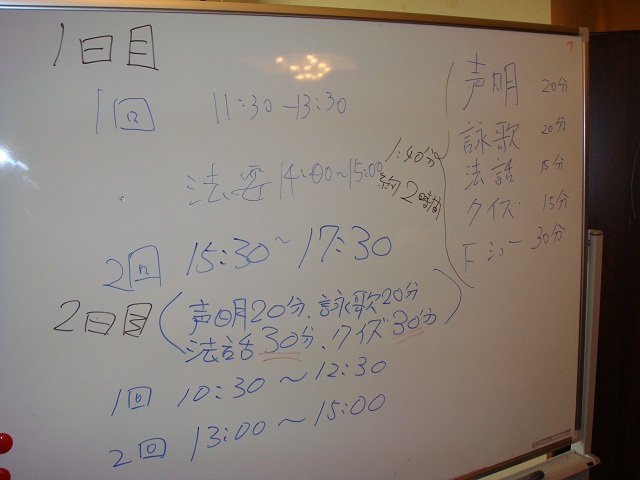 1日目
1回 11:30-13:30
法要 14:00~15:00
1:40分
約2時間
2回 15:30~17:30
声明 20分
詠歌 20分
法話 15分
クイズ 15分
Fショー 30分
2日目
(声明20分、詠歌20分
法話30分、クイズ30分)
1回 10:30~12:30
2回 13:00~15:00